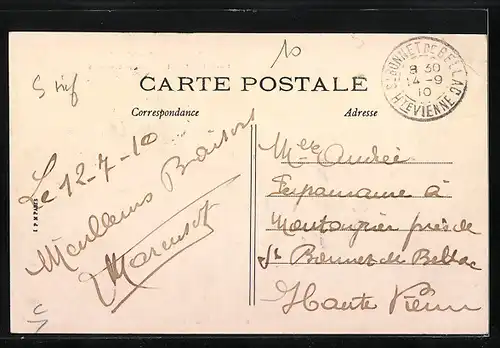 10
CARTE POSTALE
Correspondance
Adresse
ST BONNET DE BELLAC
8 30
14 -9
10
HTE VIENNE
Le 12-7-10
Meilleurs Baisers
E.P.M PARIS
Mlle Andrée
à
près de
St Bonnet de Bellac
Haute Vienne